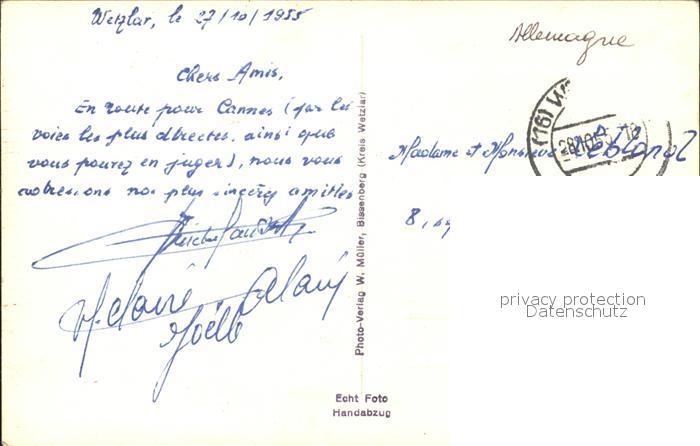 Wetzlar, le 27/10/1955
Allemagne
Chers Amis,
En route pour Cannes (par les
voies les plus directes, ainsi que
vous pouvez en juger), nous vous
adressons nos plus sincères amitiés
Alain
Joëlle
Madame et Monsieur
8,
(16)
28.10.55
Photo-Verlag W. Müller, Bissenberg (Kreis Wetzlar)
Echt Foto
Handabzug
privacy protection
Datenschutz